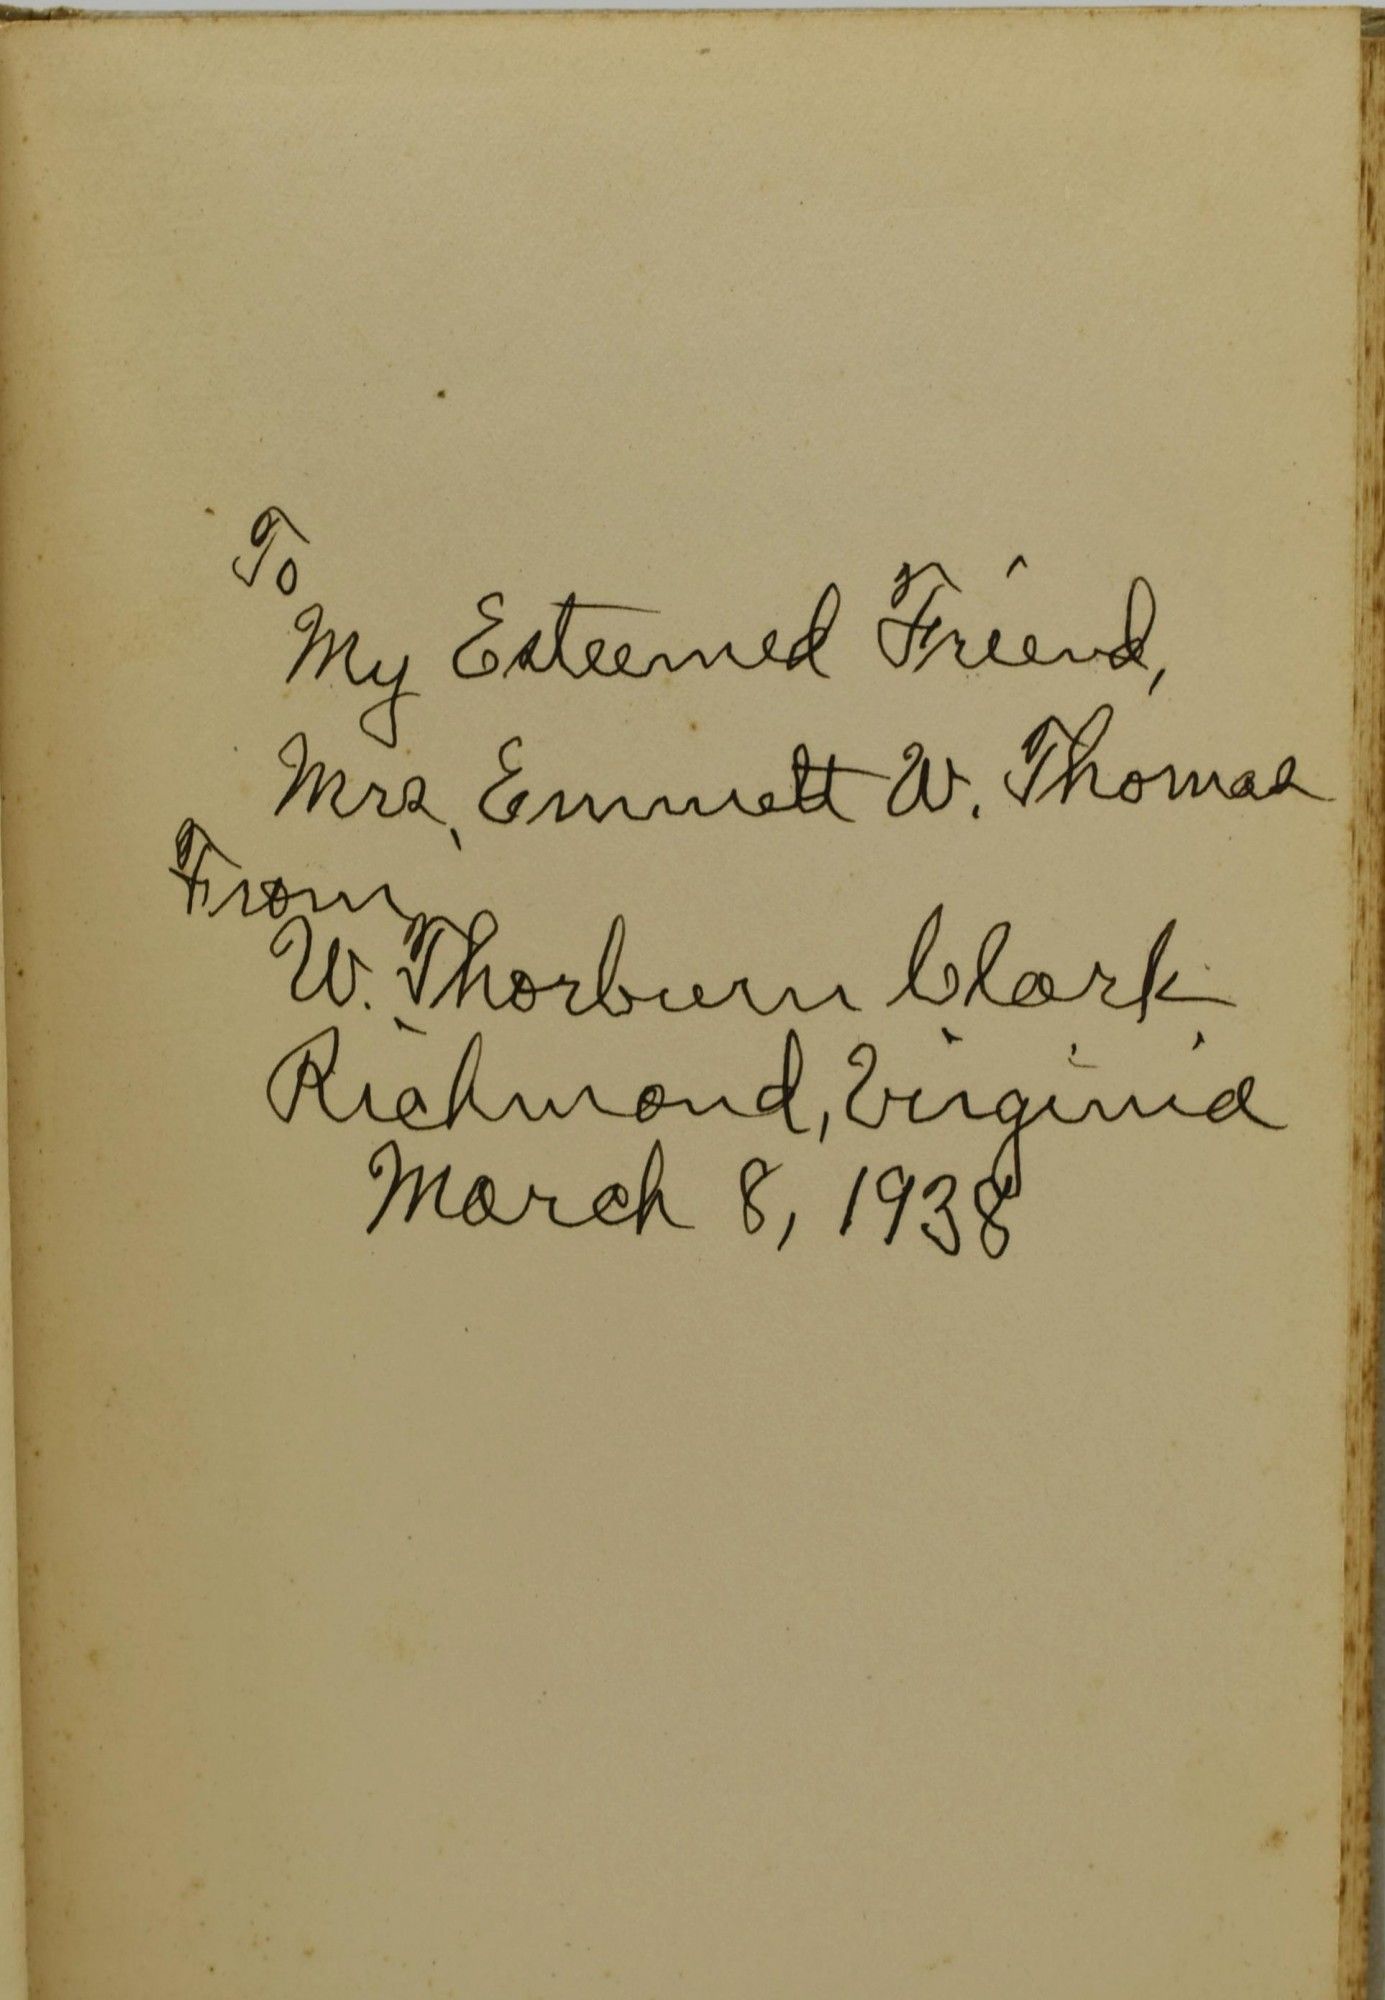 To
My Esteemed Friend,
Mrs. Emmett W. Thomas
From
W. Thorburn Clark
Richmond, Virginia
March 8, 1938